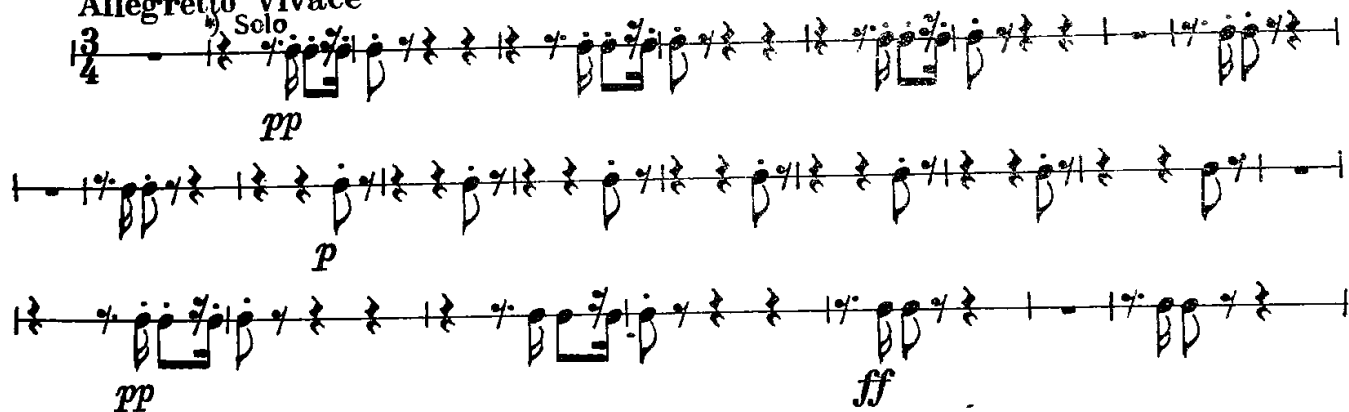 Allegretto Vivace
*) Solo
3
4
pp
p
pp
ff